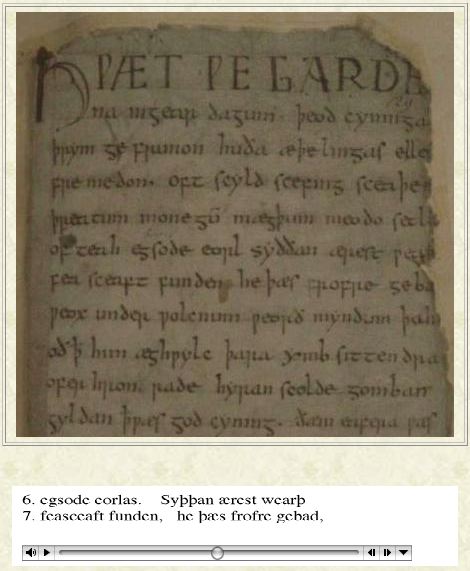 HǷÆT ǷE GARDE
na ingear dagum. þeod cyninga
þrym ge frunon huða æþelingas elle
fre medon. oft scyld scefing sceaþe
þreatum monegū mægþum meodo setla
of teah egsode eorl syððan ærest ƿear
fea sceaft funden he þæs frofre geba
ƿeox under ƿolcnum ƿeorð myndum þah
oð ꝥ him æghƿylc þara ymb sittendra
ofer hron rade hyran scolde gomban
gyldan ꝥ ƿæs god cyning. ðam eafera ƿæs
6. egsode eorlas. Syþþan ærest wearþ
7. feasceaft funden, he þæs frofre gebad,